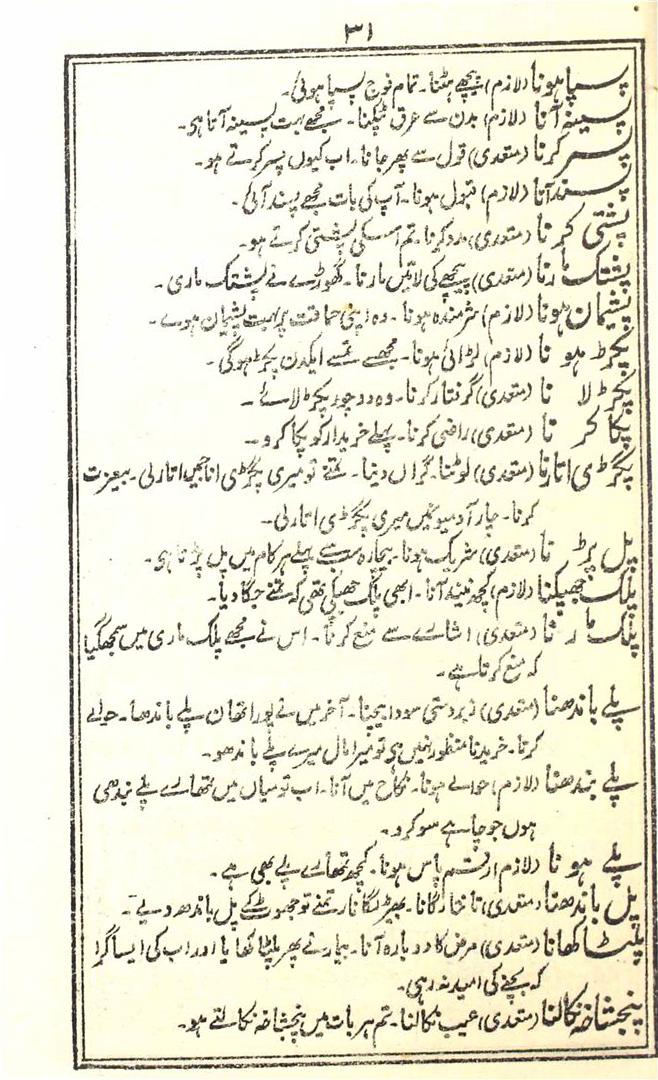 ۳۱
پسپا ہونا (لازم) پیچھے ہٹنا۔ تمام فوج پسپا ہوئی۔
پسینہ آنا (لازم) بدن سے عرق ٹپکنا۔ مجھے بہت پسینہ آتا ہی۔
پسر کرنا (متعدی) قول سے پھر جانا۔ اب کیوں پسر کرتے ہو۔
پسند آنا (لازم) قبول ہونا۔ آپ کی بات مجھے پسند آئی۔
پشتی کرنا (متعدی) مدد کرنا۔ تم اسکی پشتی کرتے ہو۔
پشتک مارنا (متعدی) پیچھے کی لاتیں مارنا۔ گھوڑے نے پشتک ماری۔
پشیمان ہونا (لازم) شرمندہ ہونا۔ وہ اپنی حماقت پر بہت پشیمان ہوے۔
پکڑ ہونا (لازم) لڑائی ہونا۔ مجھسے تمسے ایکدن پکڑ ہوگی۔
پکڑ لانا (متعدی) گرفتار کرنا۔ وہ دو چور پکڑ لائے۔
پکا کرنا (متعدی) راضی کرنا۔ پہلے خریدار کو پکا کرو۔
پگڑی اتارنا (متعدی) لوٹنا۔ گراں دینا۔ تمنے تو میری پگڑی اتارلی۔ بیعزت
کرنا۔ چار آدمیونمیں میری پگڑی اتارلی۔
پل پڑنا (متعدی) شریک ہونا۔ بیچارہ سب سے پہلے ہر کام میں پل پڑتا ہی۔
پلک جھپکنا (لازم) کچھ نیند آنا۔ ابھی پلک جھپکی تھی کہ تمنے جگا دیا۔
پلک مارنا (متعدی) اشارے سے منع کرنا۔ اس نے مجھے پلک ماری میں سمجھ گیا
کہ منع کرتا ہے۔
پلے باندھنا (متعدی) زبردستی سودا بیچنا۔ آخر میں نے پورا تھان پلے باندھا۔ حوالے
کرنا۔ خریدنا منظور نہیں ہی تو میرا مال میرے پلے باندھو۔
پلے بندھنا (لازم) حوالے ہونا۔ نکاح میں آنا۔ اب تو میاں میں تمھارے پلے بندھی
ہوں جو چاہے سو کرو۔
پلے ہونا (لازم) پاس ہونا۔ کچھ تمھارے پلے بھی ہے۔
پل باندھنا (متعدی) تانتا لگانا۔ بھیڑ لگانا۔ تمنے تو جھوٹ کے پل باندھ دیے۔
پلٹا کھانا (متعدی) مرض کا دوبارہ آنا۔ بیمار نے پھر پلٹا کھایا اور اب کی ایسا گرا
کہ بچنے کی امید نہ رہی۔
پنجشاخہ نکالنا (متعدی) عیب نکالنا۔ تم ہر بات میں پنجشاخہ نکالتے ہو۔